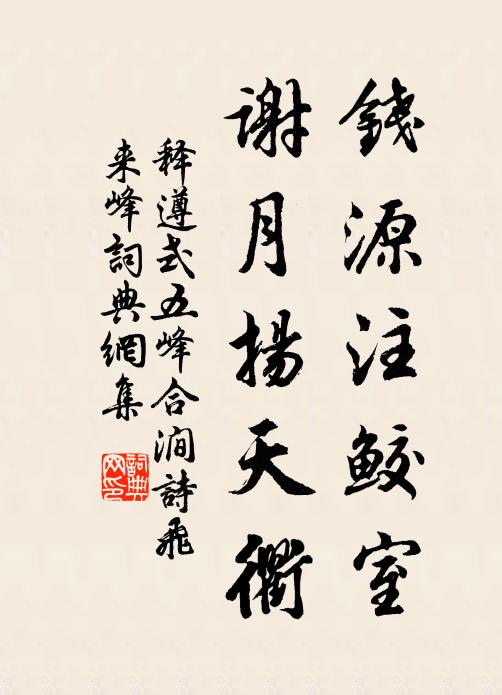 錢源注鮫室
謝月揚天衢
释遵式五峰合澗詩飛
来峰詞典網集
詞典网印